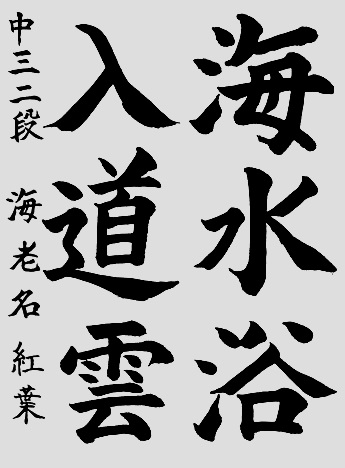 海水浴
入道雲
中三二段 海老名 紅葉